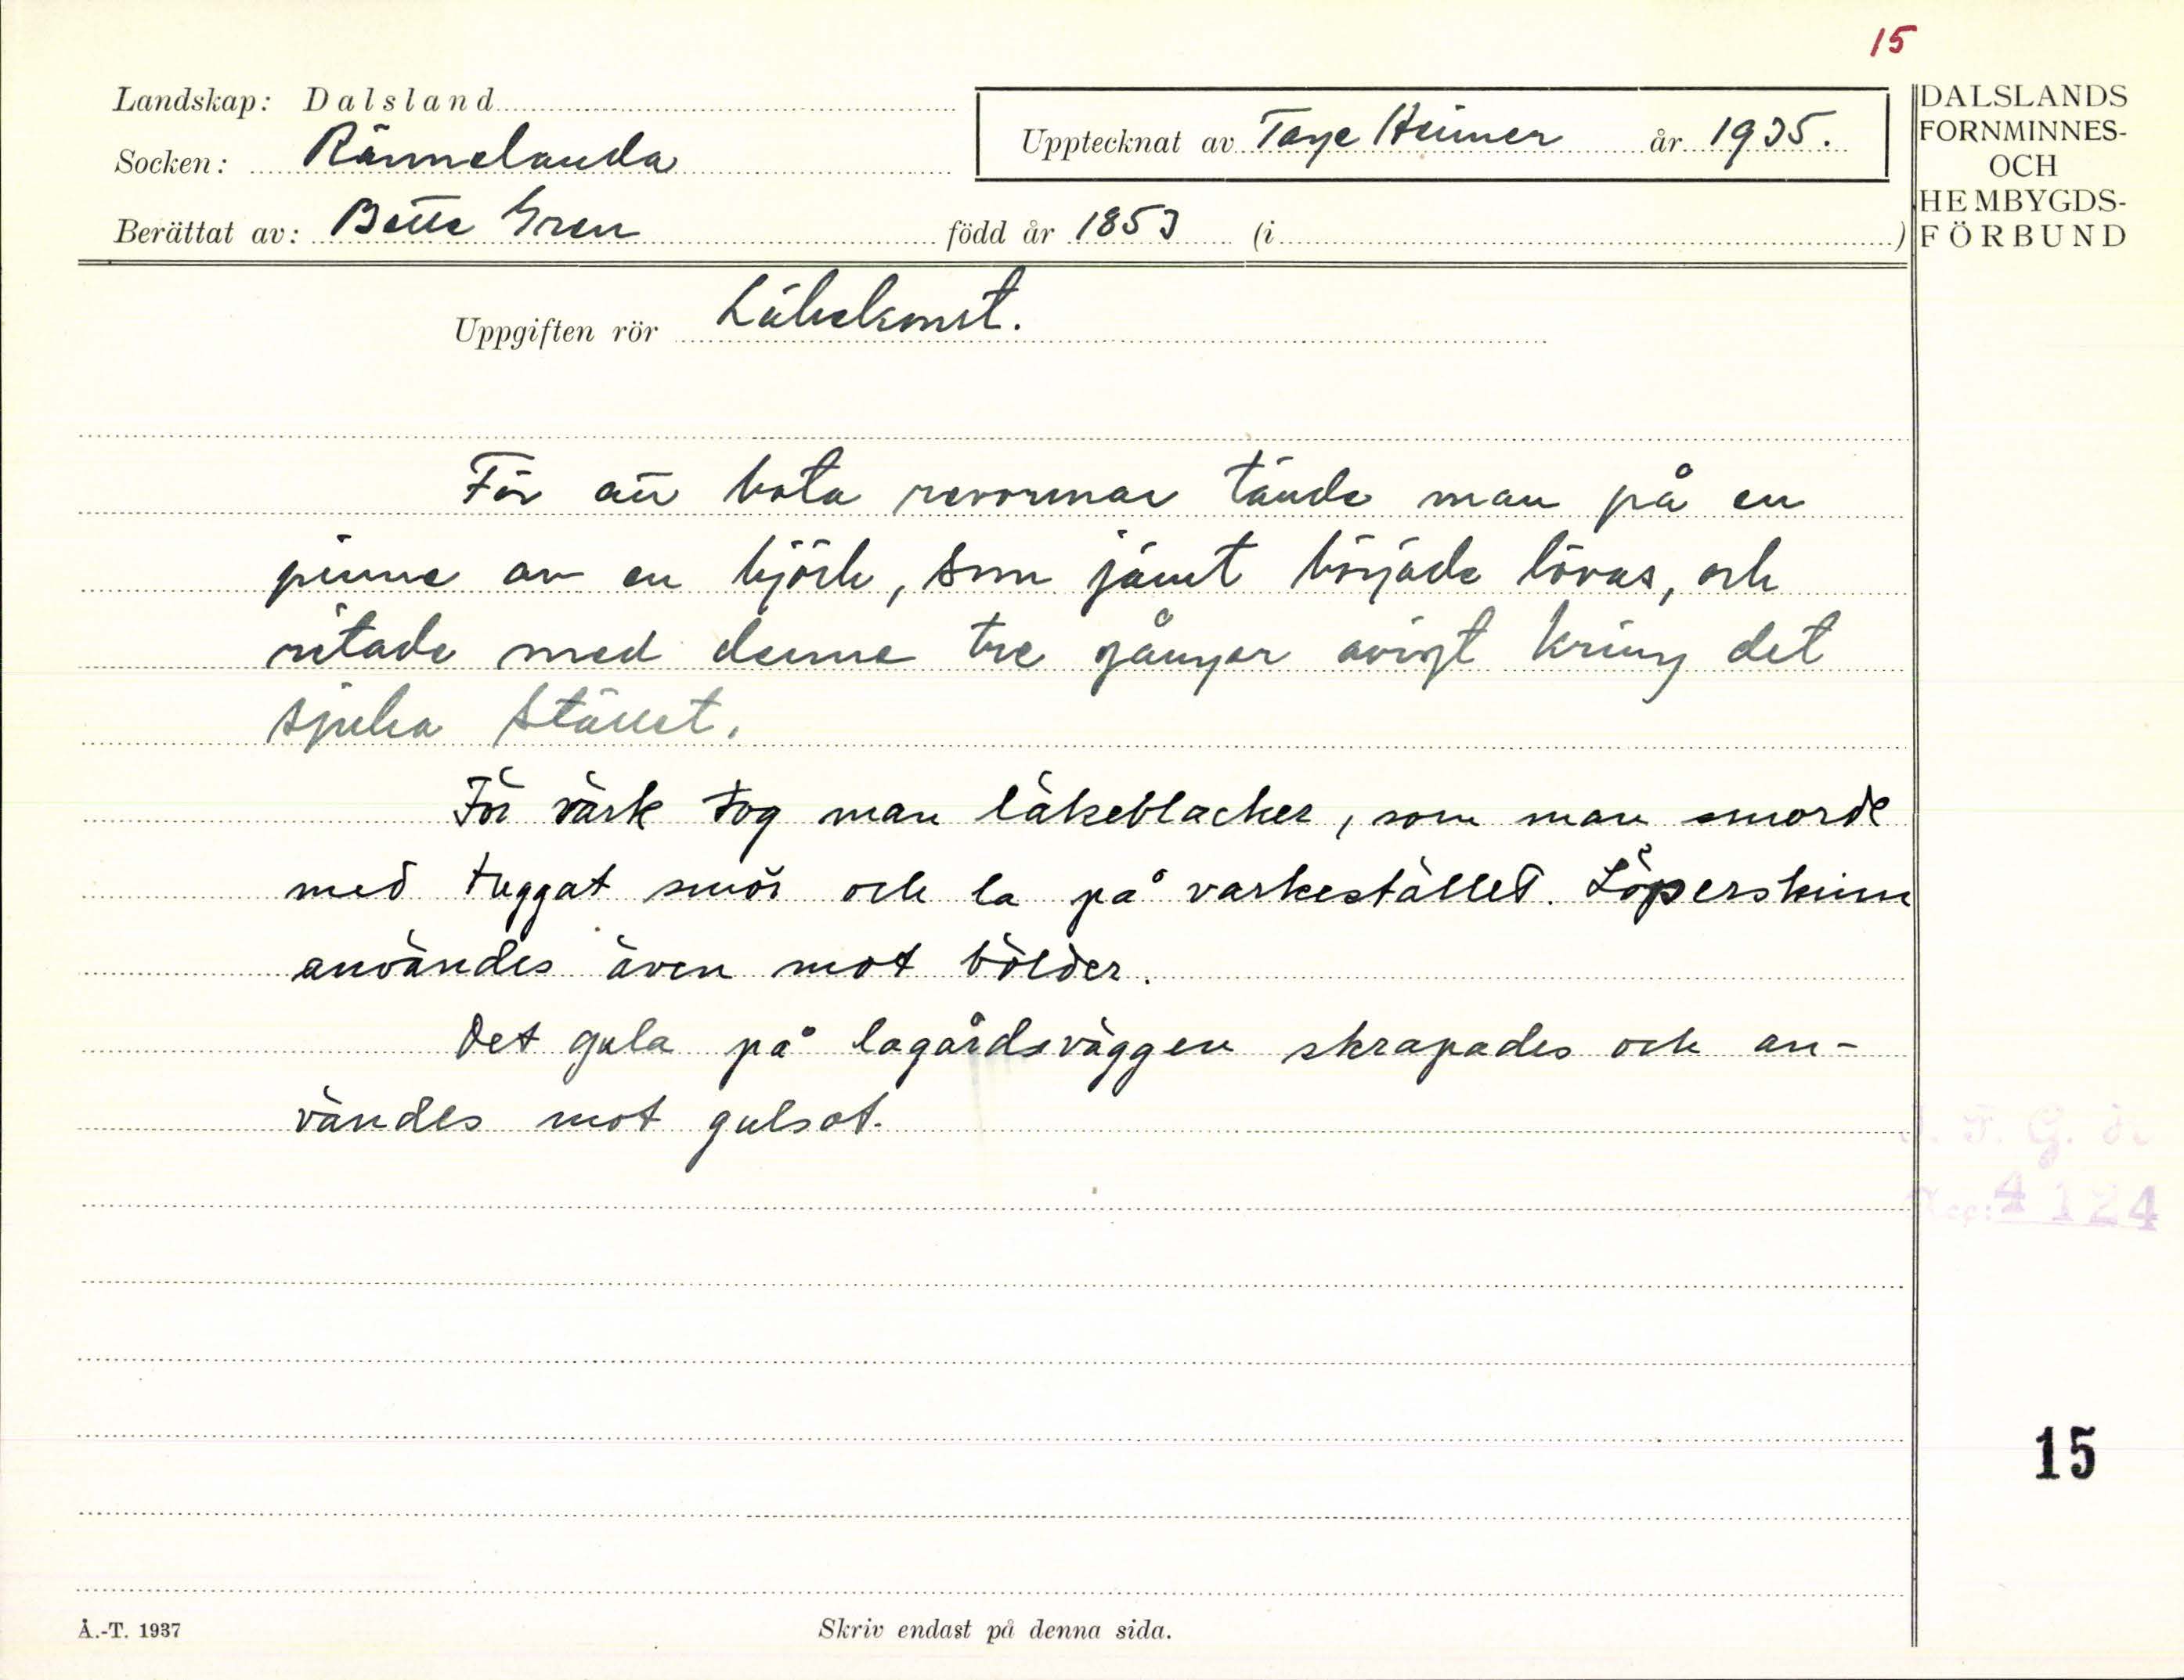 15
Landskap: Dalsland
Socken: Rännelanda
Berättat av: Bette Gren född år 1853 (i )
Upptecknat av Tage Heimer år 1935.
DALSLANDS
FORNMINNES-
OCH
HEMBYGDS-
FÖRBUND
Uppgiften rör Läkekonst.
För att bota revormar tände man på en
pinne av en björk, som jämt började lövas, och
ritade med denne tre gånger avigt kring det
sjuka stället.
För värk tog man läkeblacker, som man smorde
med tuggat smör och la på varkestället. Löperskinn
användes även mot bölder.
Det gula på lagårdsväggen skrapades och an-
vändes mot gulsot.
4124
15
Å.-T. 1937
Skriv endast på denna sida.